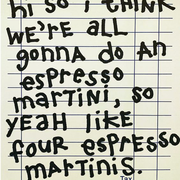 hi so i THiNK
WE'RE ALL
gonna do An
espresso
martini, so
yEAH liKE
four ESpresso
mArtinis.
Tax